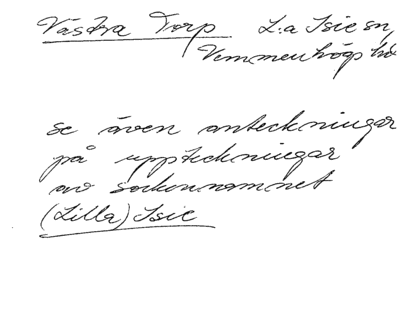 Västra Torp L:a Isie sn,
Vemmenhögs hd
se även anteckningar
på uppteckningar
av sockennamnet
(Lilla) Isie